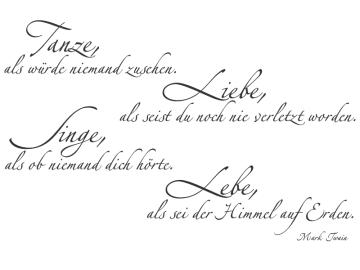 Tanze,
als würde niemand zusehen.
Liebe,
als seist du noch nie verletzt worden.
Singe,
als ob niemand dich hörte.
Lebe,
als sei der Himmel auf Erden.
Mark Twain